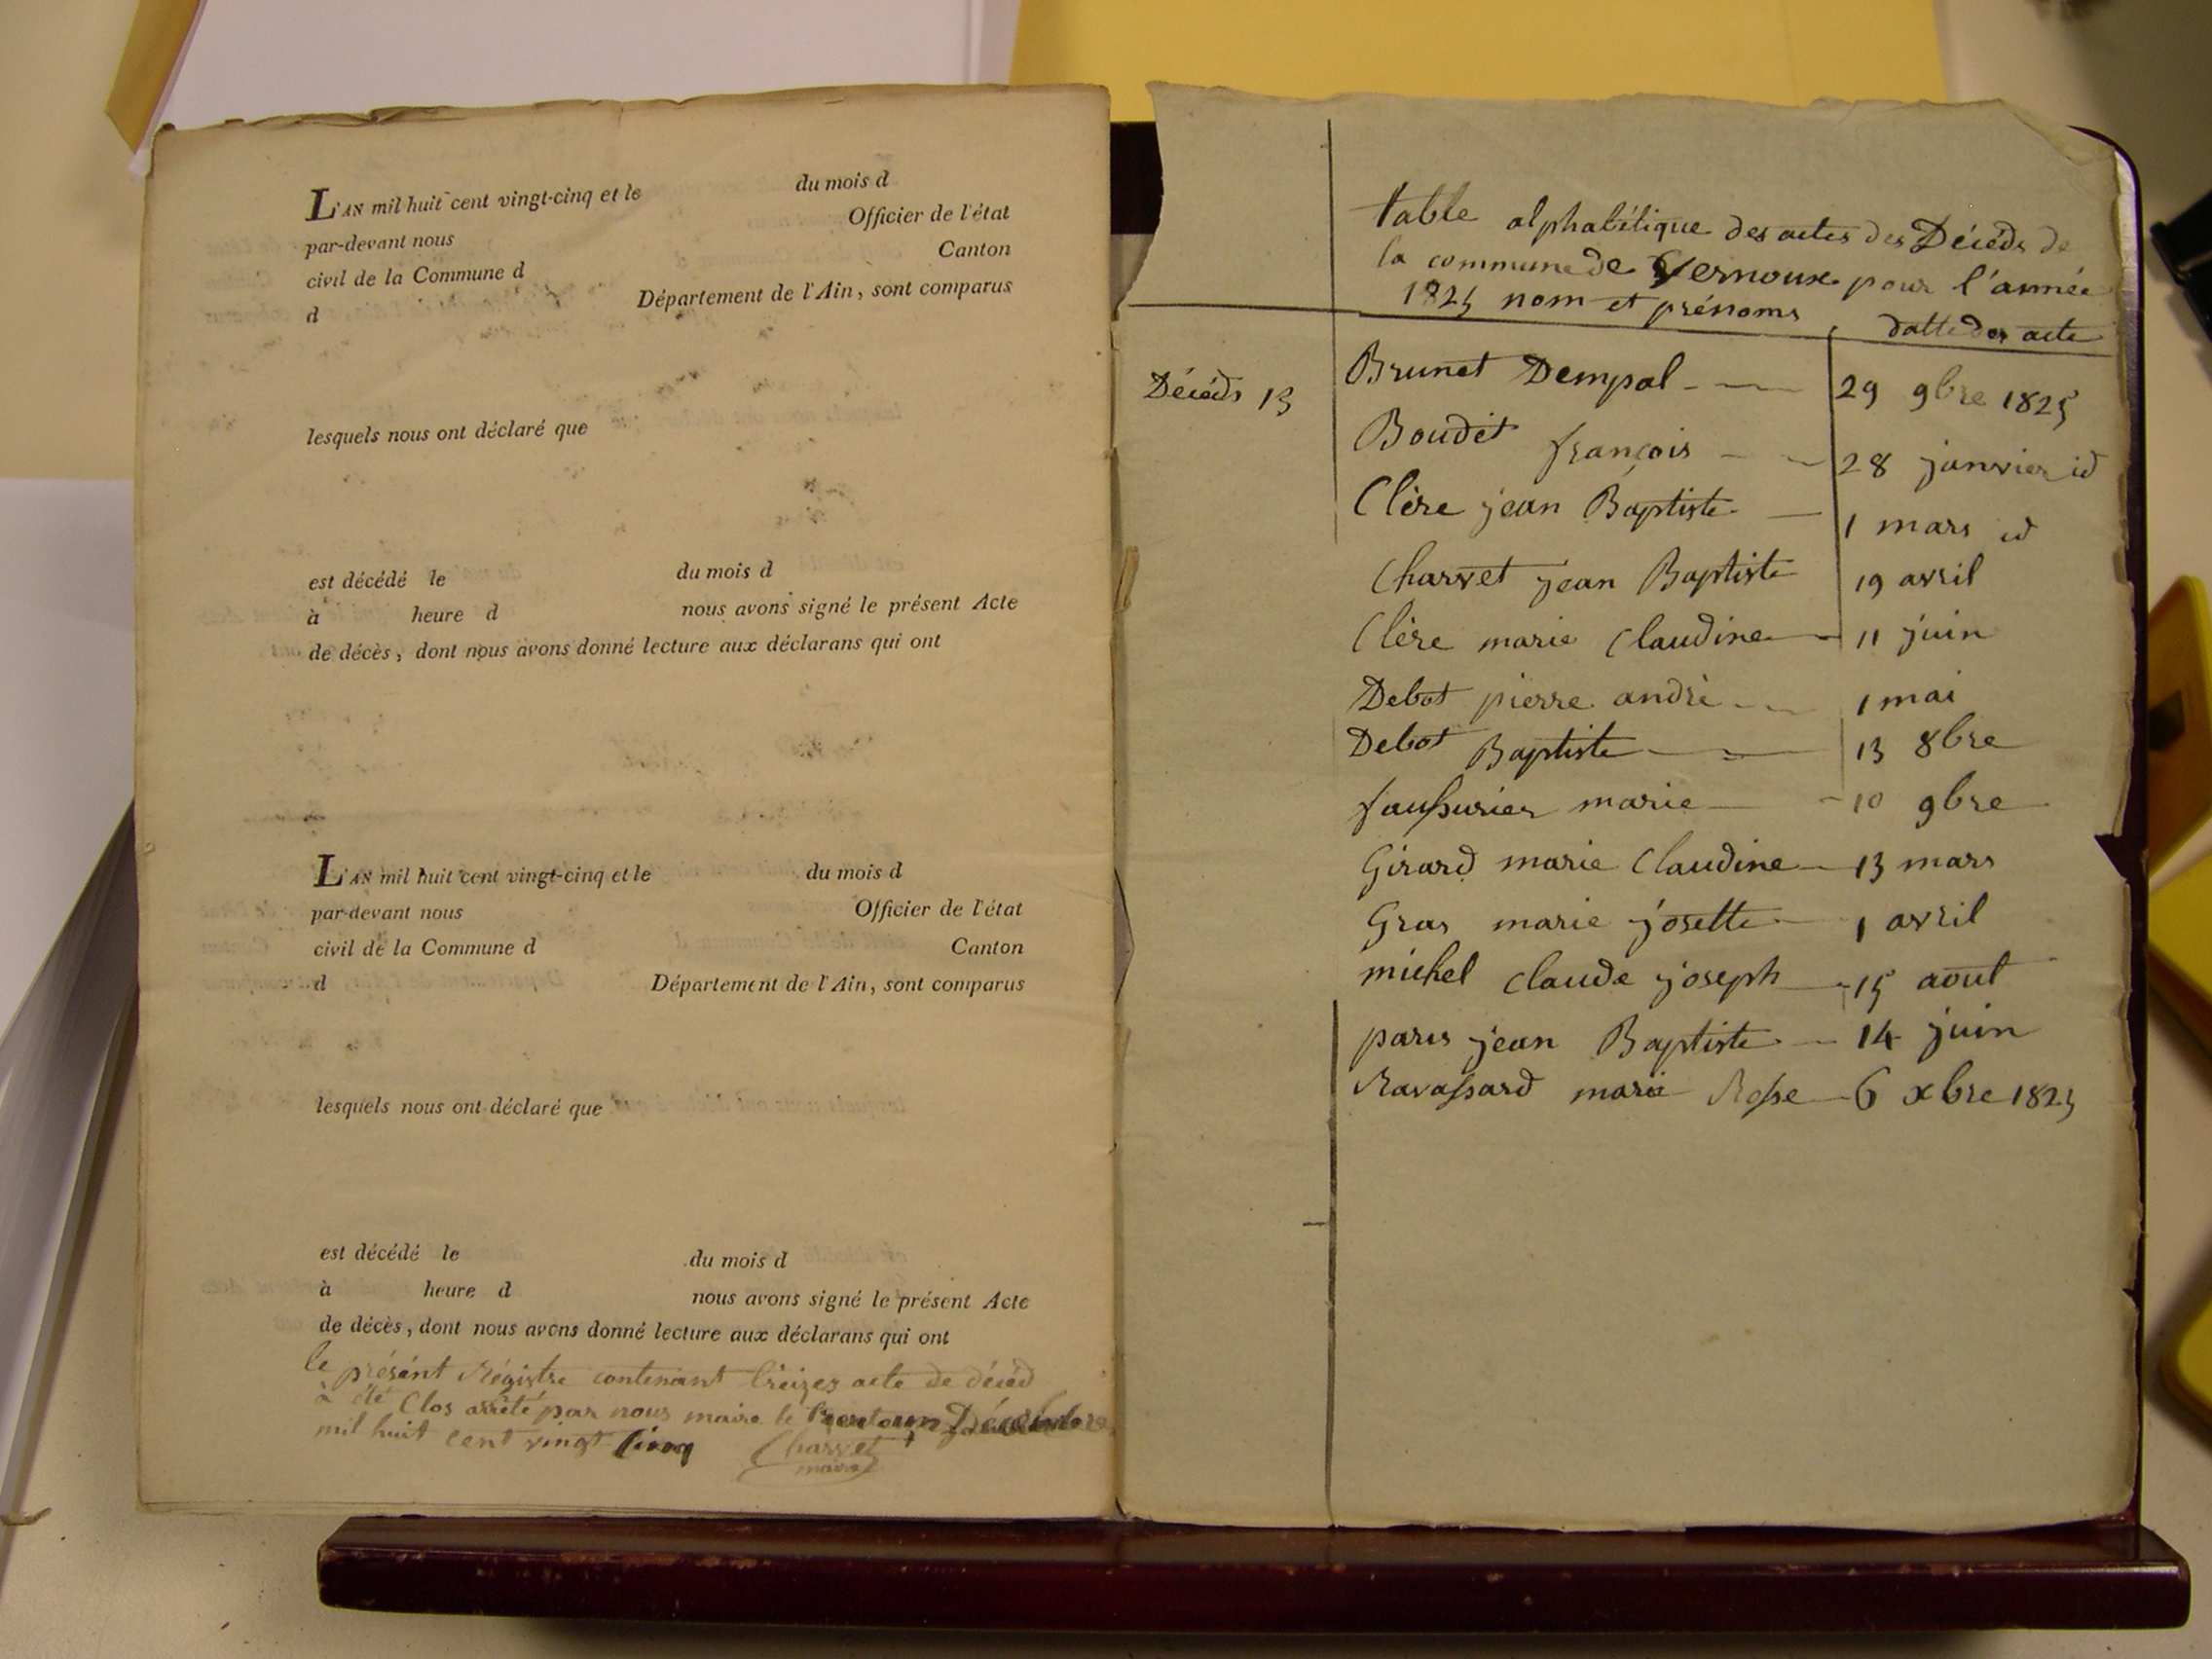 L'AN mil huit cent vingt-cinq et le du mois d
par-devant nous Officier de l'état
civil de la Commune d Canton
d Département de l'Ain, sont comparus
lesquels nous ont déclaré que
est décédé le du mois d
à heure d nous avons signé le présent Acte
de décès, dont nous avons donné lecture aux déclarans qui ont
L'AN mil huit cent vingt-cinq et le du mois d
par-devant nous Officier de l'état
civil de la Commune d Canton
d Département de l'Ain, sont comparus
lesquels nous ont déclaré que
est décédé le du mois d
à heure d nous avons signé le présent Acte
de décès, dont nous avons donné lecture aux déclarans qui ont
le présént Régistre contenant treizes acte de décéd
à été Clos arrêté par nous maire le trente un Décembre
mil huit cent vingt Cinq Charvet
maire
table alphabétique des actes des Décéds de
la commune de Vernoux pour l'année
1825 nom et prénoms datte des acte
Décéds 13
Brunet Dempal 29 9bre 1825
Boudet françois 28 janvier id
Clère jean Baptiste 1 mars id
Charvet jean Baptiste 19 avril
Clère marie Claudine 11 juin
Debot pierre andré 1 mai
Debot Baptiste 13 8bre
faussurier marie 10 9bre
Girard marie Claudine 13 mars
Gras marie josette 1 avril
michel claude joseph 15 aout
paris jean Baptiste 14 juin
Ravassard marie Rosse 6 xbre 1825